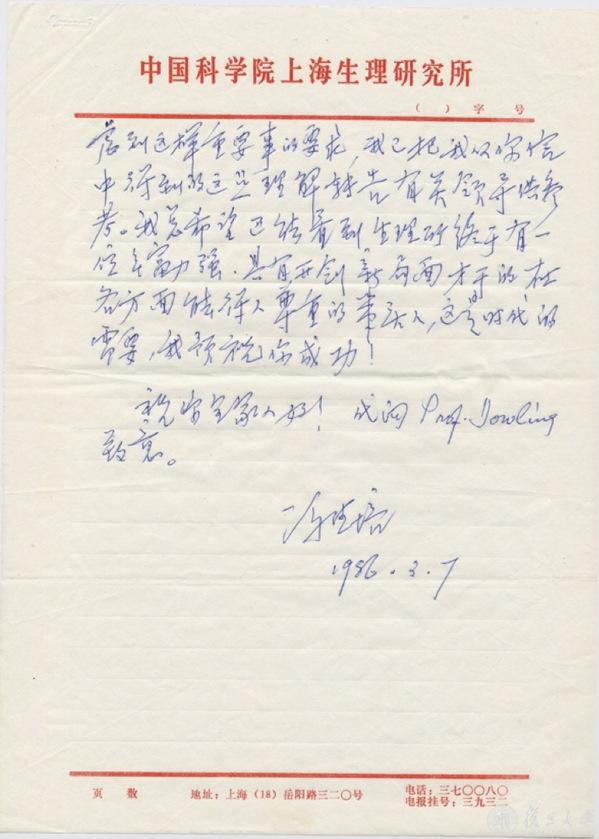 中国科学院上海生理研究所
( ) 字 号
虑到这样重要事的要求,我已把我从你信
中得到的这些理解转告有关领导供参
考。我总希望还能看到生理所终于有一
位年富力强、具有开创新局面才干的在
各方面能得人尊重的带头人,这是时代的
需要,我预祝你成功!
祝你全家人好! 代向 Prof. Dowling
致意。
冯德培
1986.3.7
页 数 地址:上海(18)岳阳路三二〇号 电话:三七〇〇八〇
电报挂号:三九三二